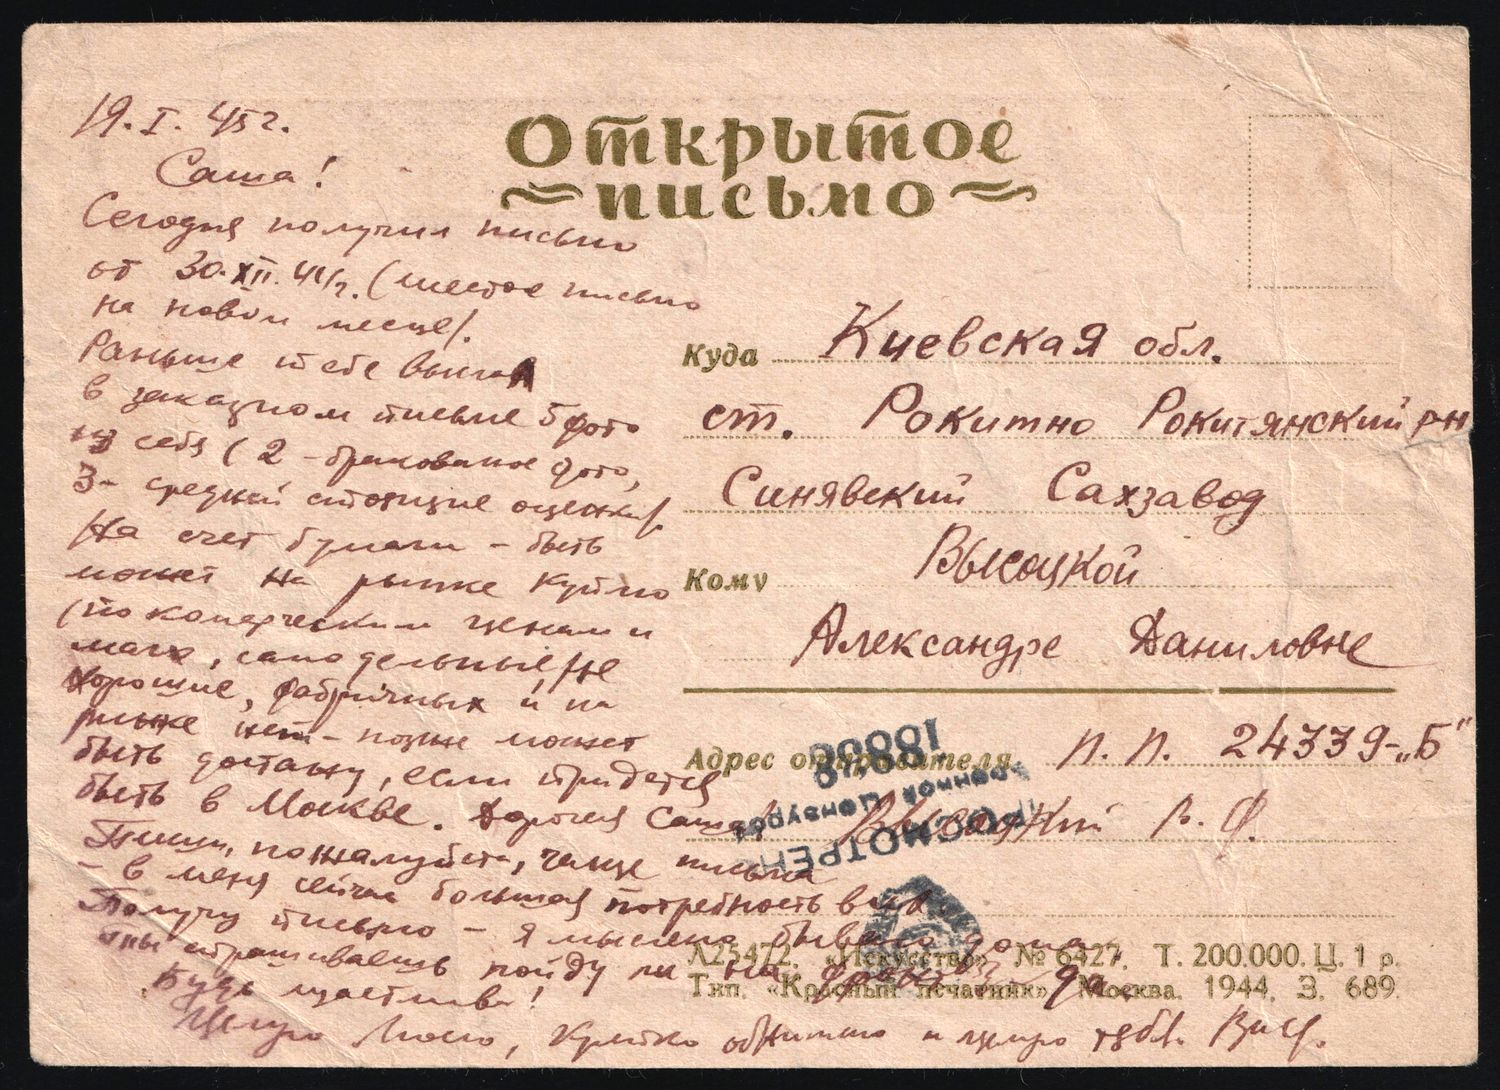 19.I.45г.
Саша!
Сегодня получил письмо
от 30.XII.44г. (шестое письмо
на новом месте).
Раньше тебе выслал
в заказном письме 5 фото
из себя (2 - бракованое фото,
3 - средней стоящие оценки).
На счет бумаги - быть
может на рынке куплю
(по комерческим ценам и
мало, самодельные, не
хорошие, фабричных и на
рынке нет - позже может
быть достану, если придется
быть в Москве. Дорогая Саша!
Пиши, пожалуйста, чаще письма
- в меня сейчас большая потребность в них
Получу письмо - я мысленно бываю дома
ты спрашиваешь пойду ли на фронт? да.
Будь счастлива!
Целую Люсю, крепко обнимаю и целую тебя.
Открытое
письмо
Куда Киевская обл.
ст. Рокитно Рокитянский р-н
Синявский Сахзавод
Кому Высоцкой
Александре Даниловне
Адрес отправителя П.П. 24339-„Б"
Высоцкий В. Ф.
ПРОСМОТРЕНО
Военной Цензурой
10000
Л25472. «Искусство» № 6427. Т. 200.000. Ц. 1 р.
Тип. «Красный печатник» Москва. 1944. З. 689.